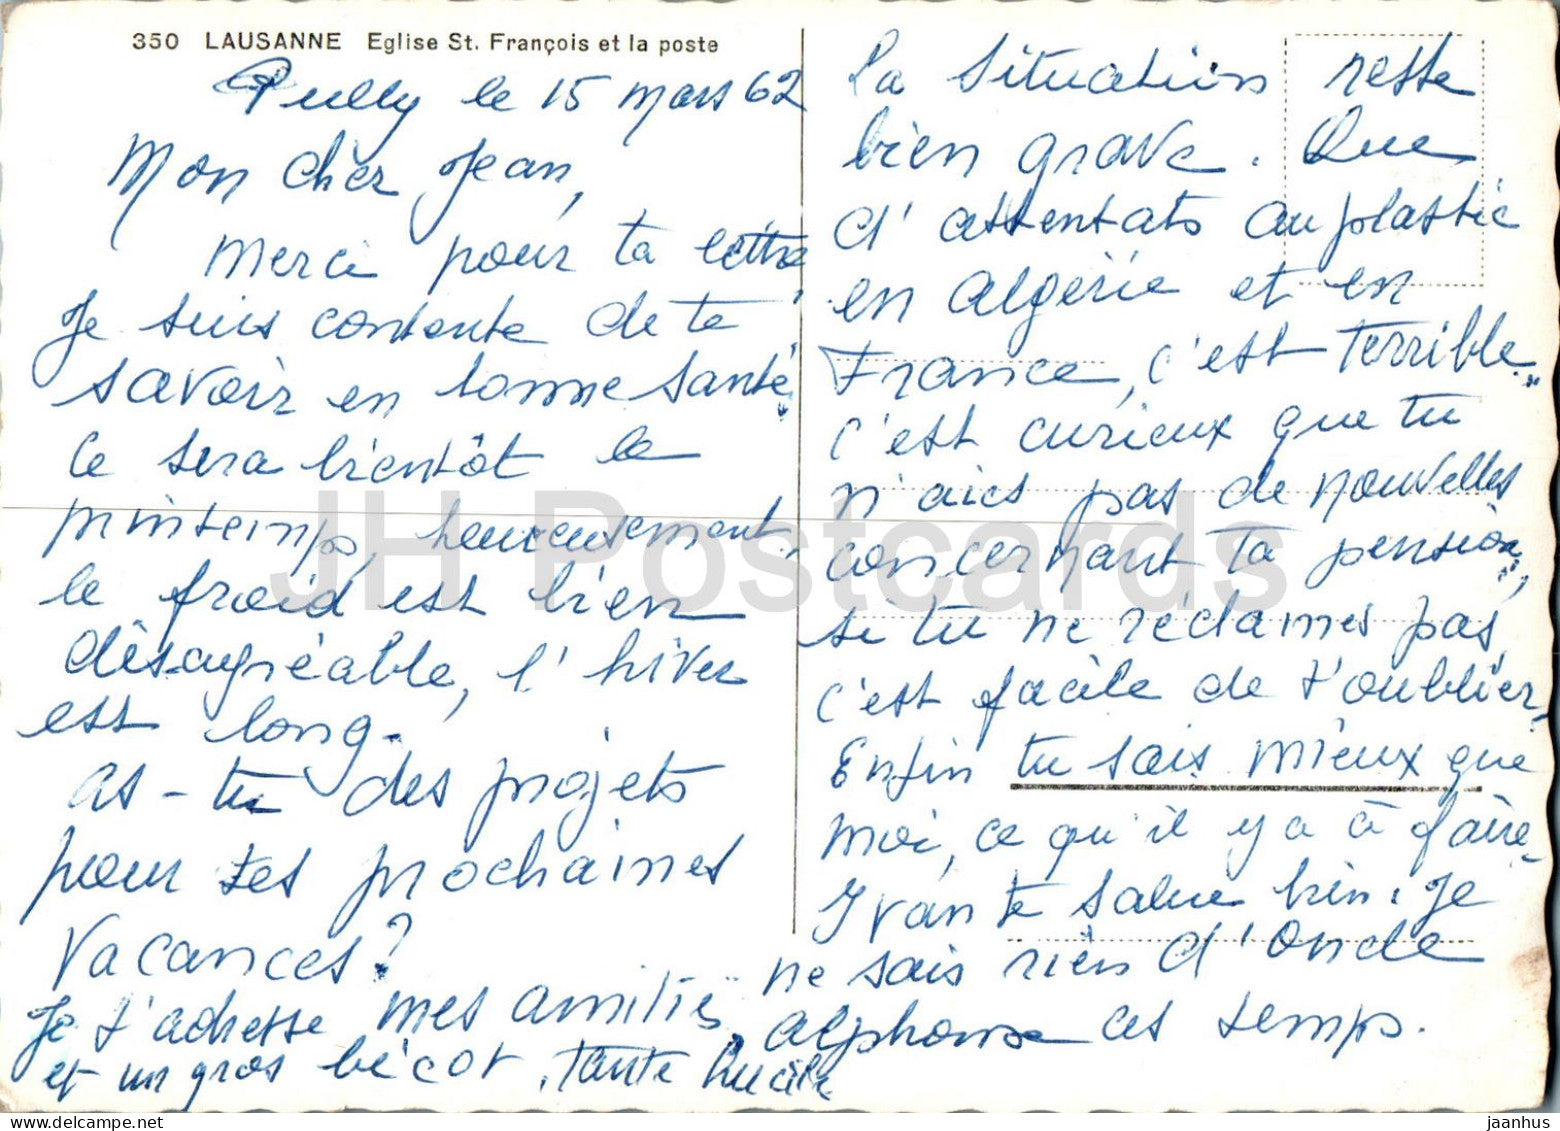 350 LAUSANNE Eglise St. François et la poste
Pully le 15 mars 62
Mon cher Jean,
Merci pour ta lettre
Je suis contente de te
savoir en bonne santé.
Ce sera bientôt le
printemps, heureusement.
le froid est bien
désagréable, l'hiver
est long.
as-tu des projets
pour tes prochaines
vacances?
Je t'adresse mes amitiés
et un gros bécot. Tante Lucile
La situation reste
bien grave. Que
d'attentats au plastic
en algérie et en
France, c'est terrible.
c'est curieux que tu
n'aies pas de nouvelles
concernant ta pension,
si tu ne réclames pas,
c'est facile de t'oublier.
Enfin tu sais mieux que
moi, ce qu'il y a à faire.
Yvan te salue bien. Je
ne sais rien d'Oncle
alphonse ces temps.
JH Postcards
jaanhus